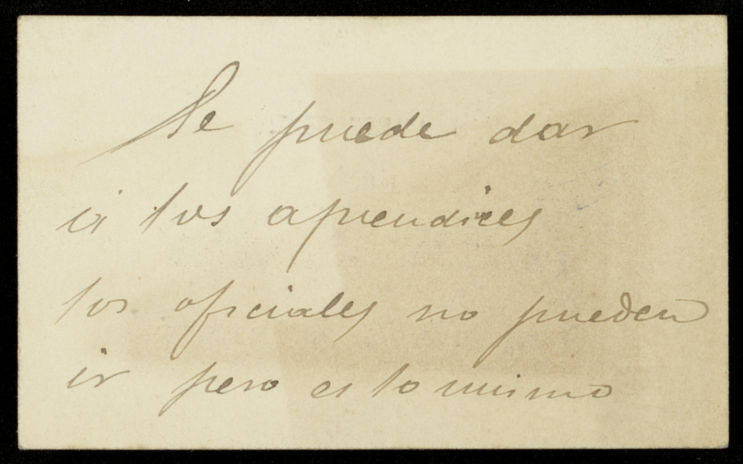 Se puede dar
á los aprendices
los oficiales no pueden
ir pero es lo mismo